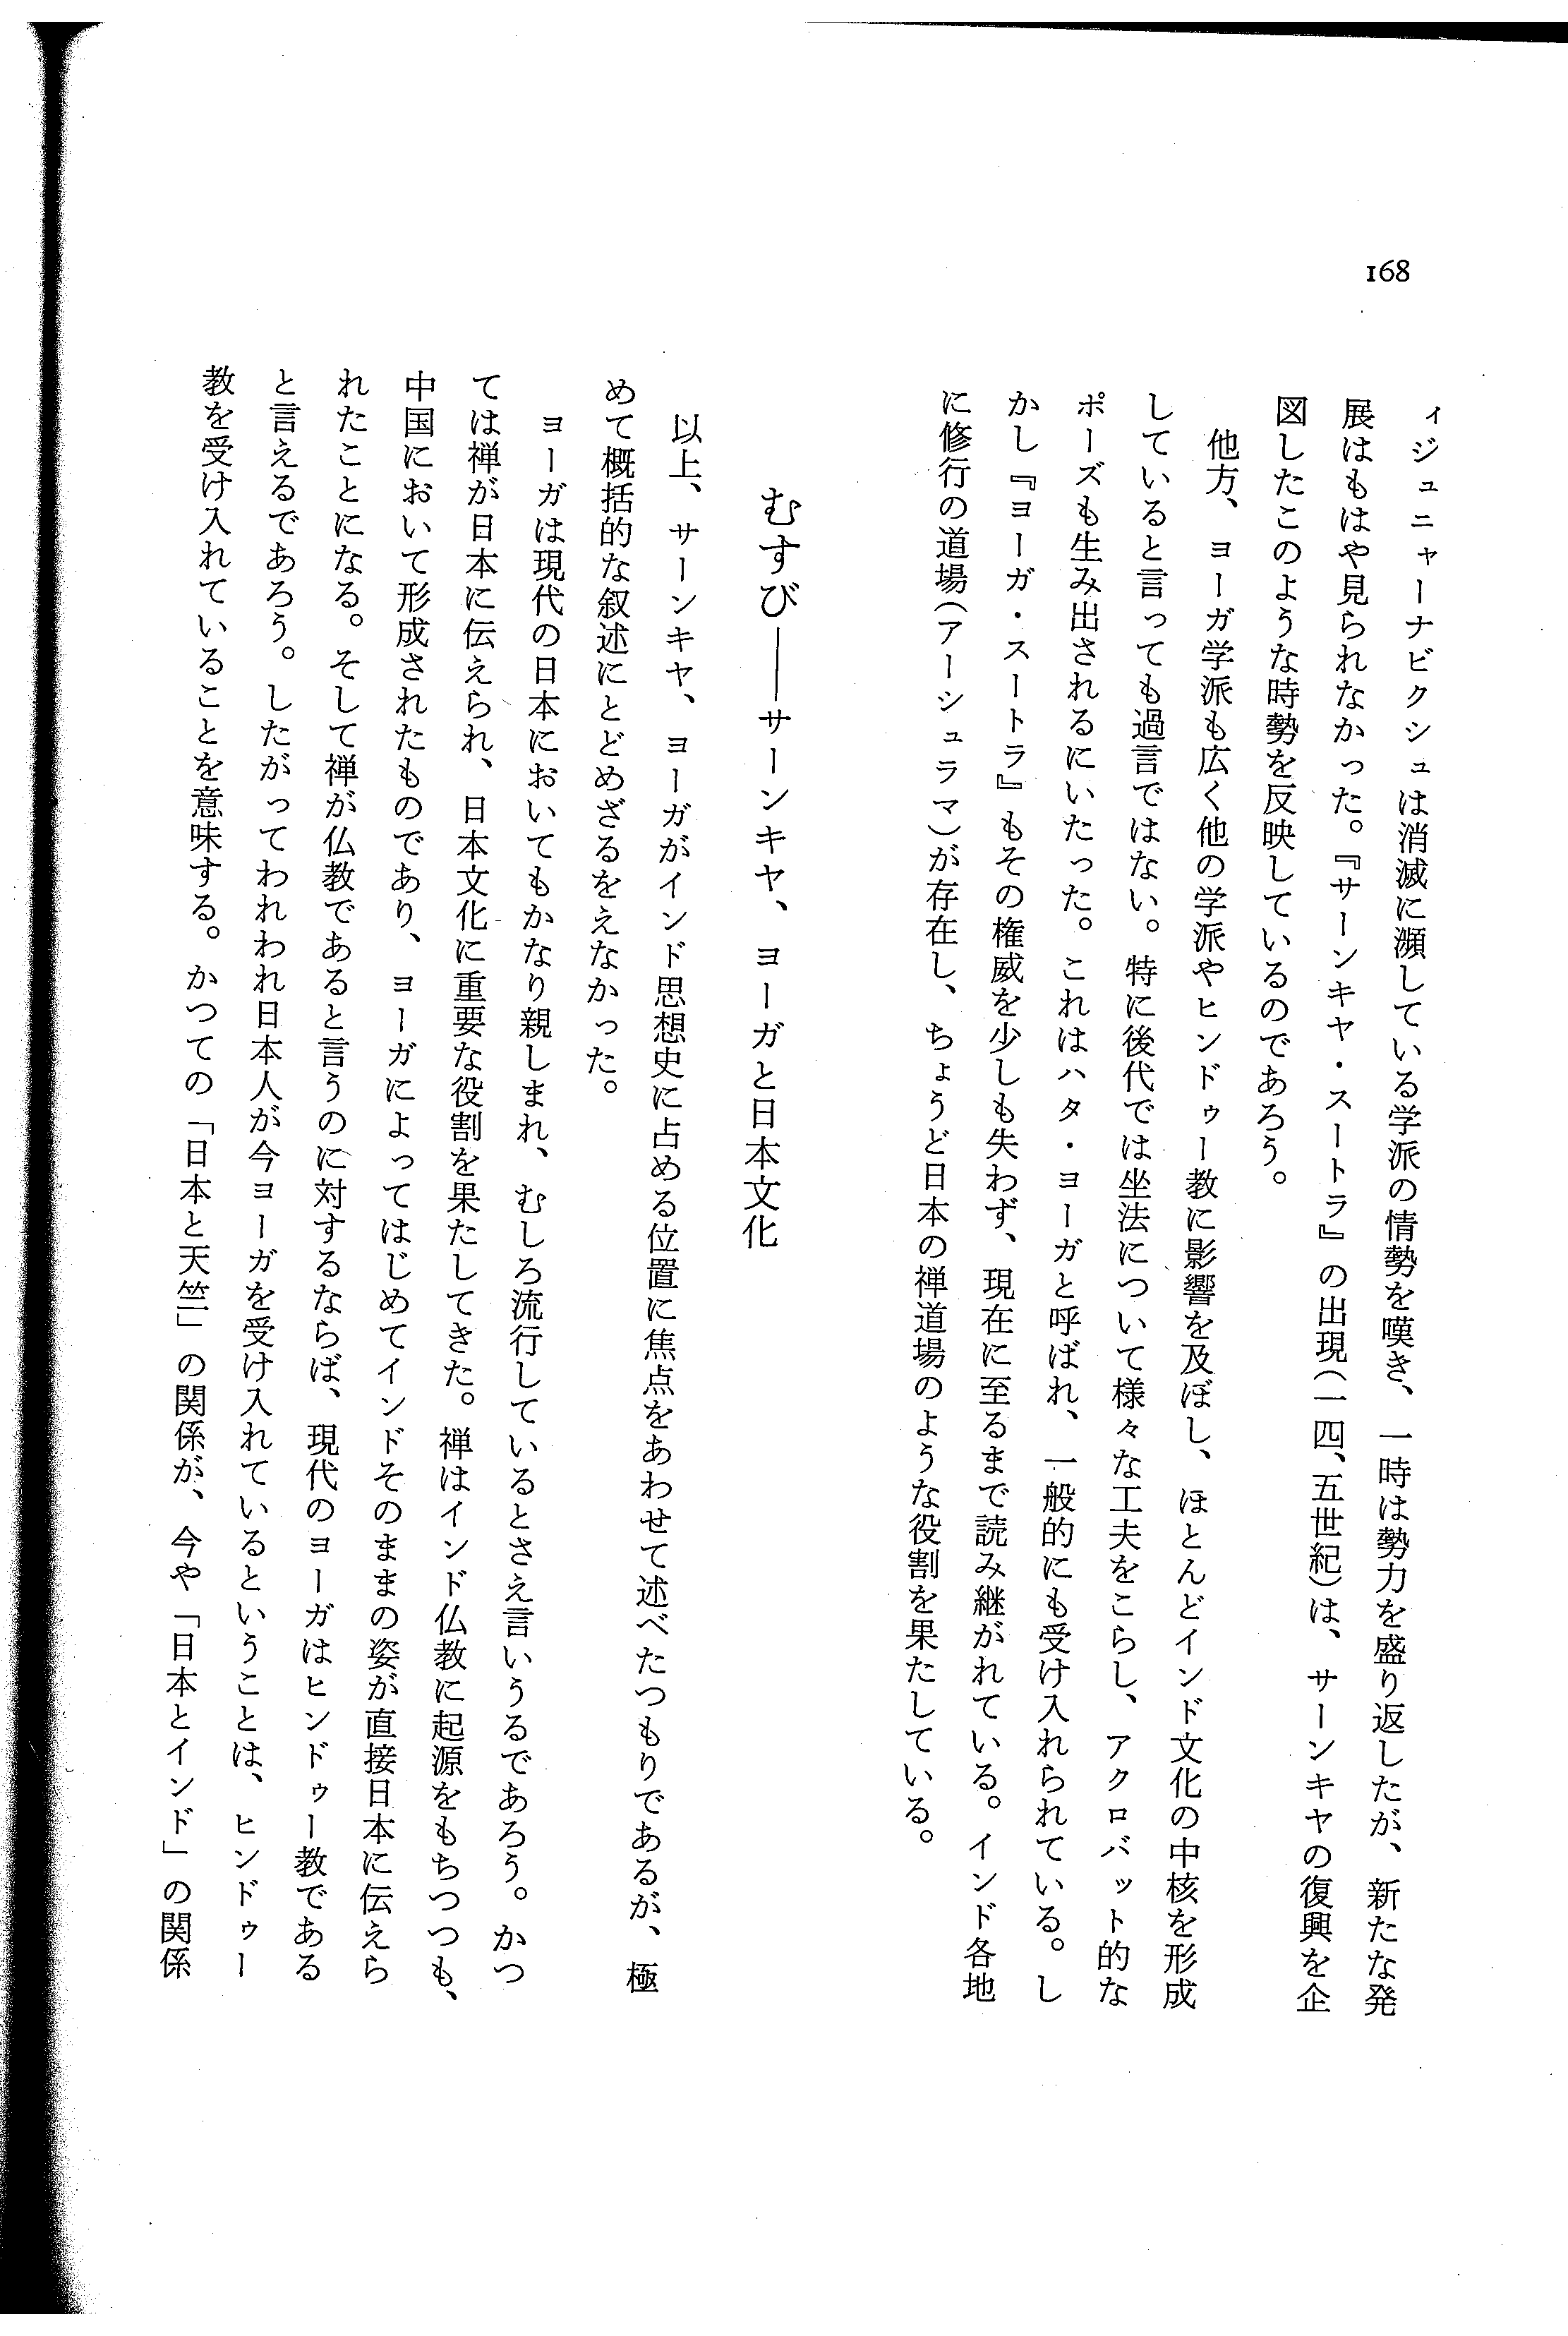 168
ィジュニャーナビクシュは消滅に瀕している学派の情勢を嘆き、一時は勢力を盛り返したが、新たな発
展はもはや見られなかった。『サーンキヤ・スートラ』の出現(一四、五世紀)は、サーンキヤの復興を企
図したこのような時勢を反映しているのであろう。
他方、ヨーガ学派も広く他の学派やヒンドゥー教に影響を及ぼし、ほとんどインド文化の中核を形成
していると言っても過言ではない。特に後代では坐法について様々な工夫をこらし、アクロバット的な
ポーズも生み出されるにいたった。これはハタ・ヨーガと呼ばれ、一般的にも受け入れられている。し
かし『ヨーガ・スートラ』もその権威を少しも失わず、現在に至るまで読み継がれている。インド各地
に修行の道場(アーシュラマ)が存在し、ちょうど日本の禅道場のような役割を果たしている。
むすび――サーンキヤ、ヨーガと日本文化
以上、サーンキヤ、ヨーガがインド思想史に占める位置に焦点をあわせて述べたつもりであるが、極
めて概括的な叙述にとどめざるをえなかった。
ヨーガは現代の日本においてもかなり親しまれ、むしろ流行しているとさえ言いうるであろう。かつ
ては禅が日本に伝えられ、日本文化に重要な役割を果たしてきた。禅はインド仏教に起源をもちつつも、
中国において形成されたものであり、ヨーガによってはじめてインドそのままの姿が直接日本に伝えら
れたことになる。そして禅が仏教であると言うのに対するならば、現代のヨーガはヒンドゥー教である
と言えるであろう。したがってわれわれ日本人が今ヨーガを受け入れているということは、ヒンドゥー
教を受け入れていることを意味する。かつての「日本と天竺」の関係が、今や「日本とインド」の関係